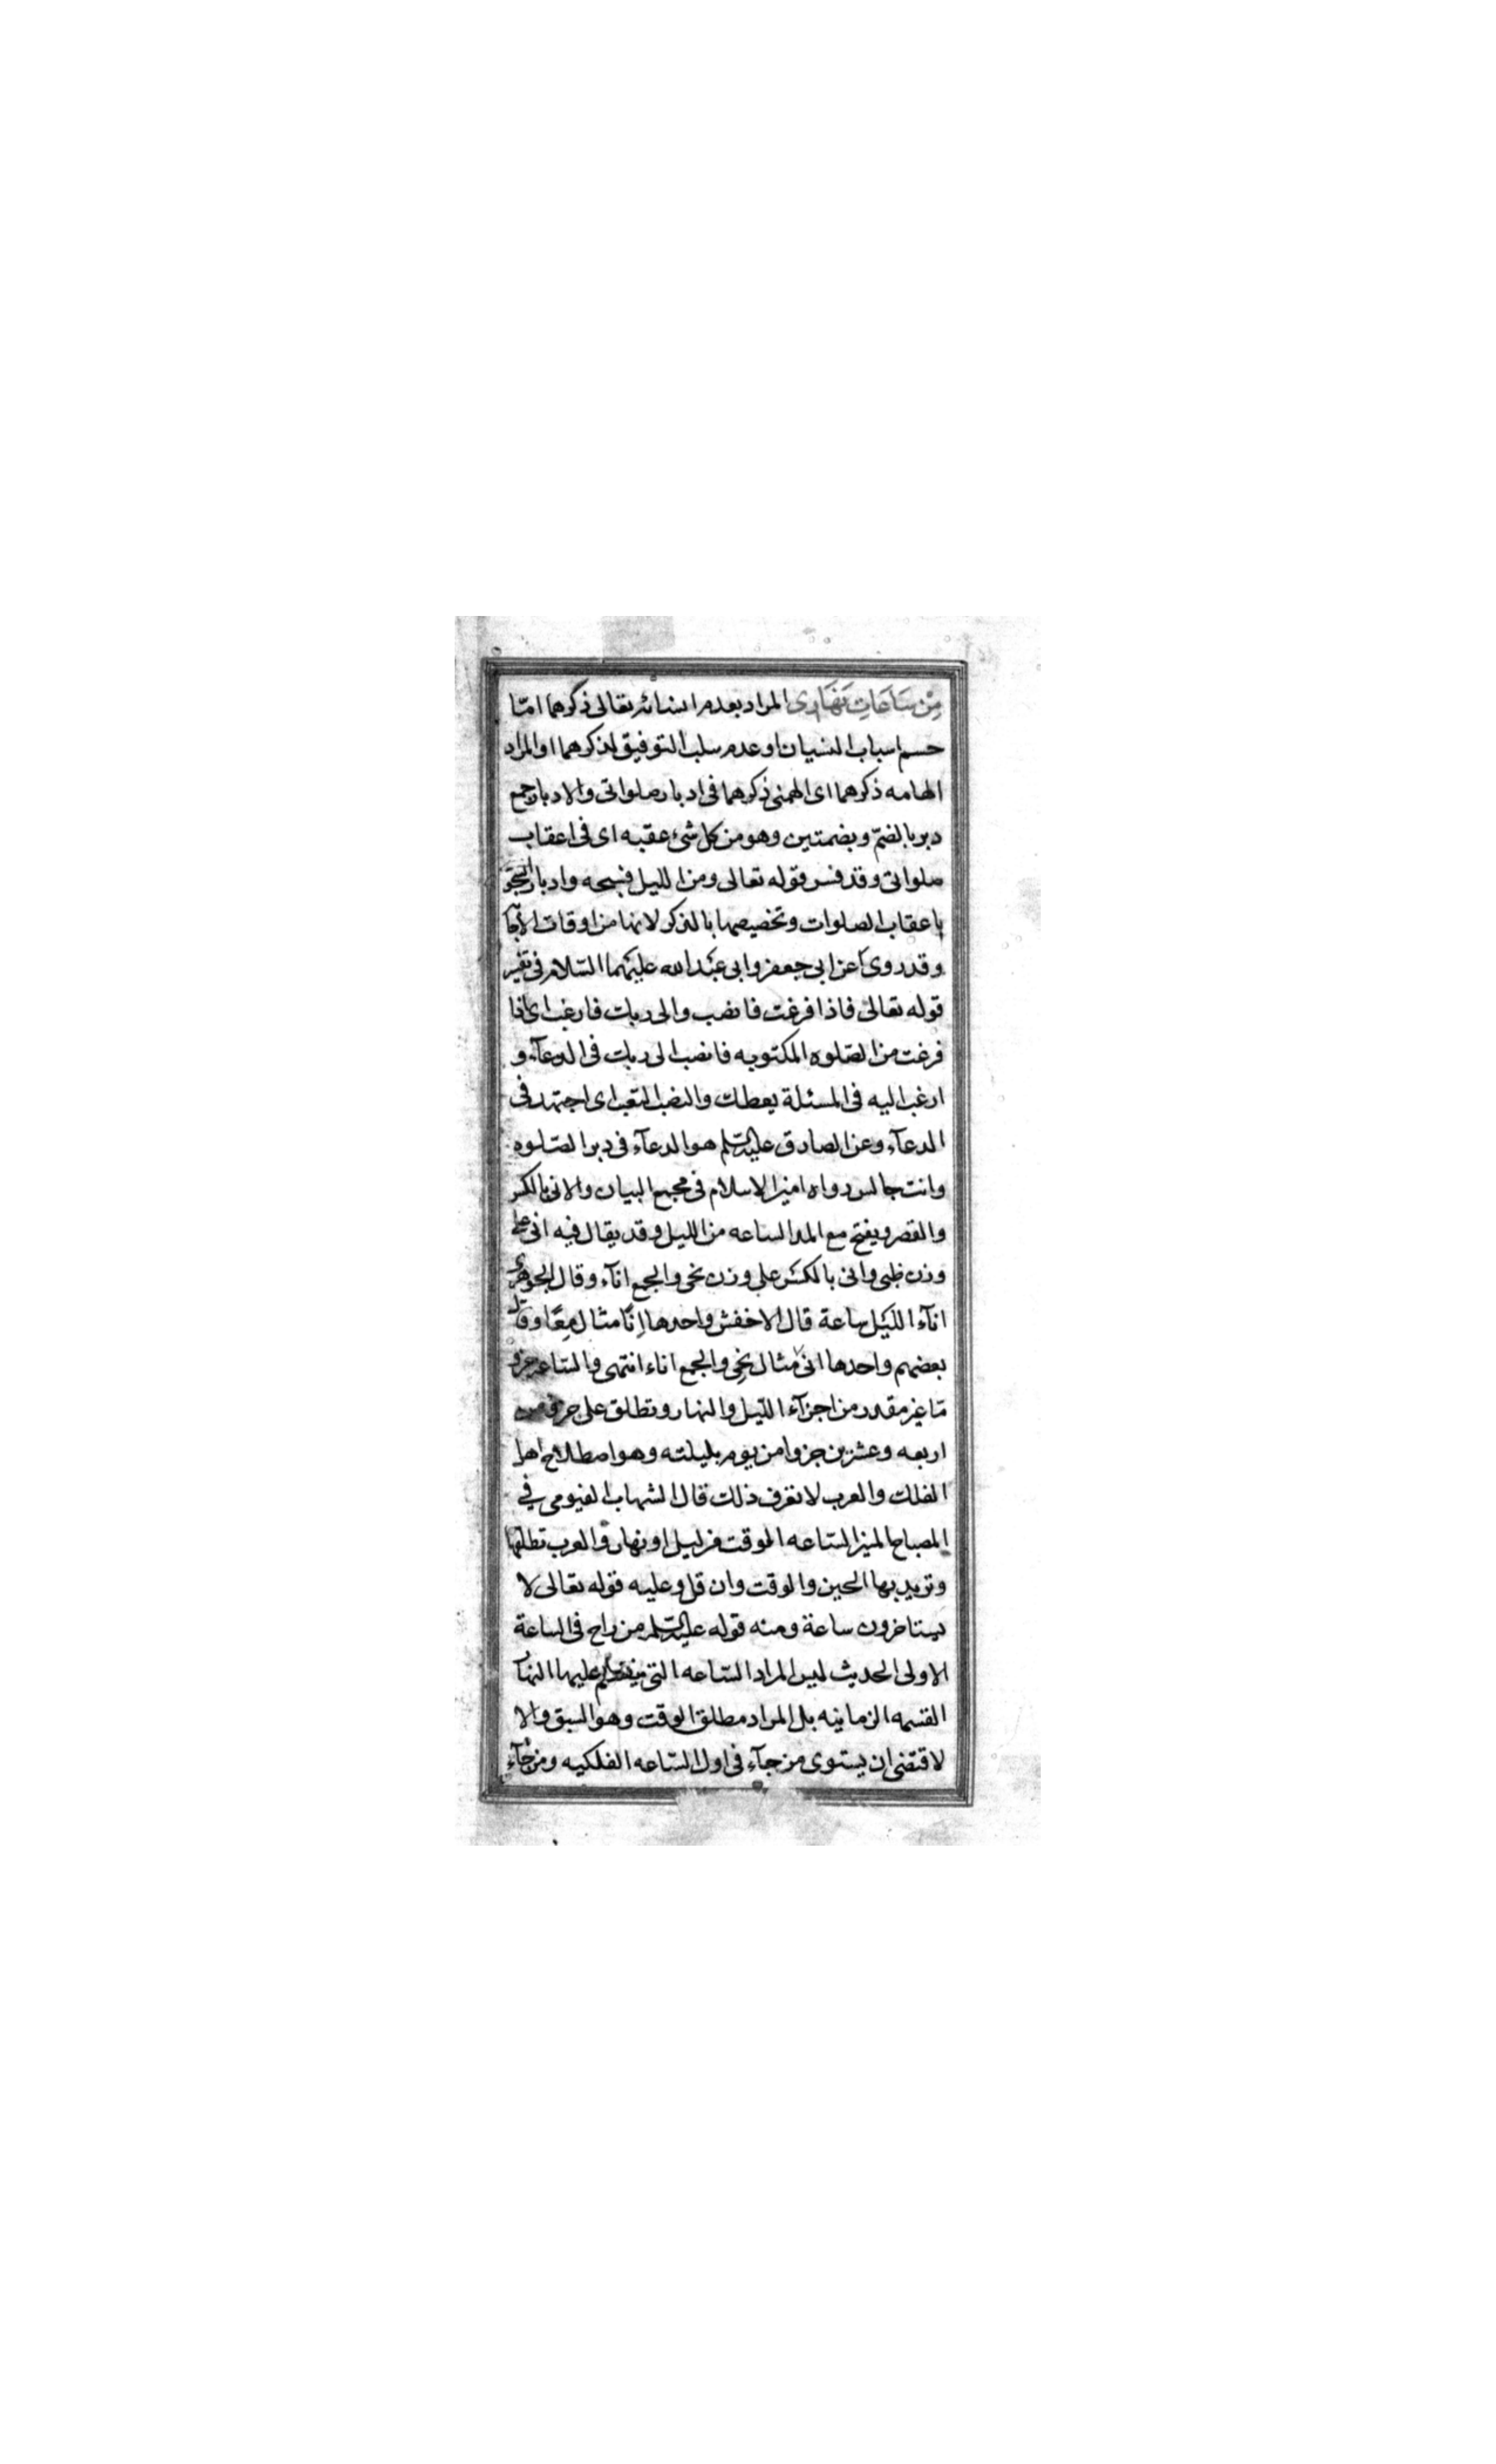 مِنْ سَاعَاتِ نَهَارى المراد بعدم انسائه تعالى ذكرهما امّا
حسم اسباب النسيان او عدم سلب التوفيق لذكرهما او المراد
الهامه ذكرهما اى الهمنى ذكرهما فى ادبار صلواتى والادبار جمع
دبر بالضمّ وبضمتين وهو من كل شئ عقبه اى فى اعقاب
صلواتى وقد فسر قوله تعالى ومن الليل فسبحه وادبار السجود
باعقاب الصلوات وتخصيصها بالذكر لانها من اوقات الاجابة
وقد روى عن ابى جعفر وابى عبد الله عليهما السّلام فى تفسير
قوله تعالى فاذا فرغت فانصب والى ربك فارغب اى اذا
فرغت من الصّلوه المكتوبه فانصب الى ربك فى الدعآء و
ارغب اليه فى المسئلة يعطك والنصب التعب اى اجتهد فى
الدعآء وعن الصادق عليه السلم هو الدعآء فى دبر الصّلوه
وانت جالس رواه امين الاسلام فى مجمع البيان والانى بالكسر
والقصر ويفتح مع المد الساعه من الليل وقد يقال فيه انى على
وزن ظبى وانى بالكسر على وزن نحى والجمع انآء وقال الجوهرى
انآء اللّيل ساعة قال الاخفش واحدها اِنًا مثال مِعًا وقال
بعضهم واحدها انىٌ مثال نِحى والجمع اناء انتهى والسّاعه جزو
مّا غير مقدر من اجزآء اللّيل والنهار وتطلق على جزو من
اربعه وعشرين جزوا من يوم بليلته وهو اصطلاح اهل
الفلك والعرب لا تعرف ذلك قال الشهاب الفيومى في
المصباح المنير السّاعه الوقت من ليل او نهار والعرب تطلقها
وتريد بها الحين والوقت وان قل وعليه قوله تعالى لا
يستاخرون ساعة ومنه قوله عليه السلم من راح فى الساعة
الاولى الحديث ليس المراد السّاعه التى ينقسم عليها النهار
القسمه الزمانيه بل المراد مطلق الوقت وهو السبق والا
لاقتضى ان يستوى من جآء فى اول السّاعه الفلكيه ومن جآء